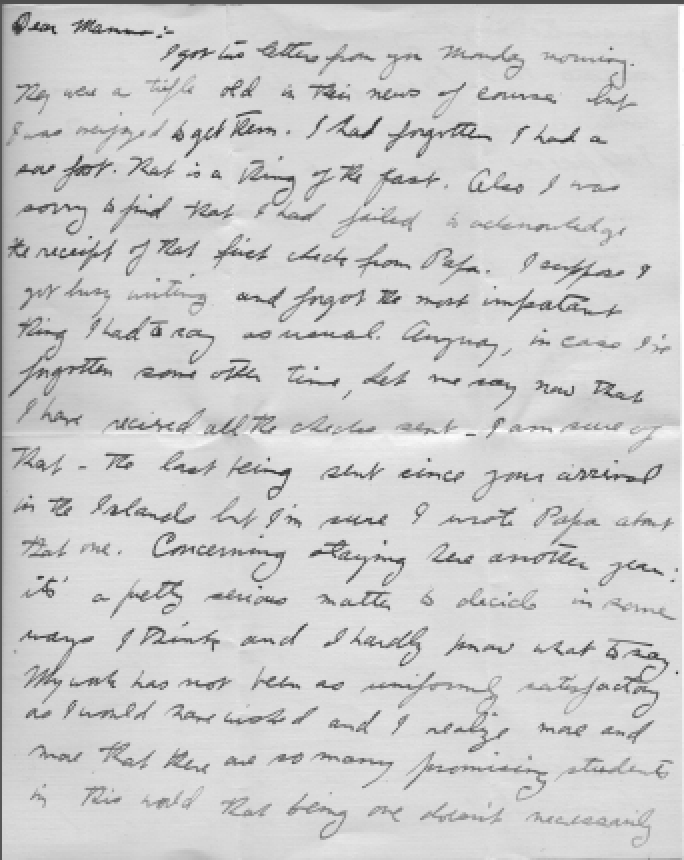 Dear Mamma:-
I got two letters from you Monday morning.
They were a trifle old in their news of course but
I was overjoyed to get them. I had forgotten I had a
sore foot. That is a thing of the past. Also I was
sorry to find that I had failed to acknowledge
the receipt of that first check from Papa. I suppose I
got busy writing and forgot the most important
thing I had to say as usual. Anyway, in case I've
forgotten some other time, let me say now that
I have received all the checks sent - I am sure of
that - the last being sent since your arrival
in the Islands but I'm sure I wrote Papa about
that one. Concerning staying here another year:
it's a pretty serious matter to decide in some
ways I think and I hardly know what to say.
My work has not been as uniformly satisfactory
as I would have wished and I realize more and
more that there are so many promising students
in this world that being one doesn't necessarily